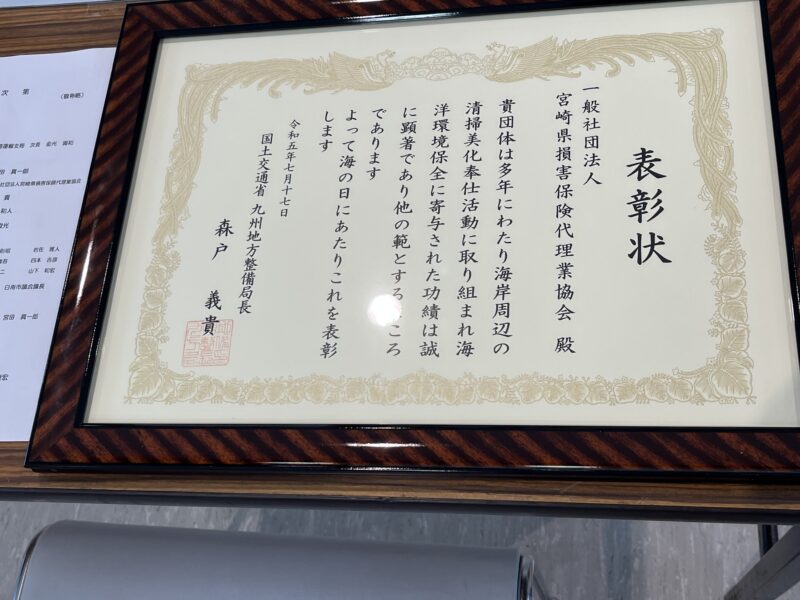 表彰状
一般社団法人
宮崎県損害保険代理業協会 殿
貴団体は多年にわたり海岸周辺の
清掃美化奉仕活動に取り組まれ海
洋環境保全に寄与された功績は誠
に顕著であり他の範とする ころ
であります
よって海の日にあたりこれを表彰
します
令和五年七月十七日
国土交通省 九州地方整備局長
森戸 義貴
次 第
(敬称略)
次長
真一郎
社団法人宮崎県損害保険代理業協会
貴
和人
岩在 雅人
四本
二 山下 和宏
日南市議会議長
宮田 真一郎